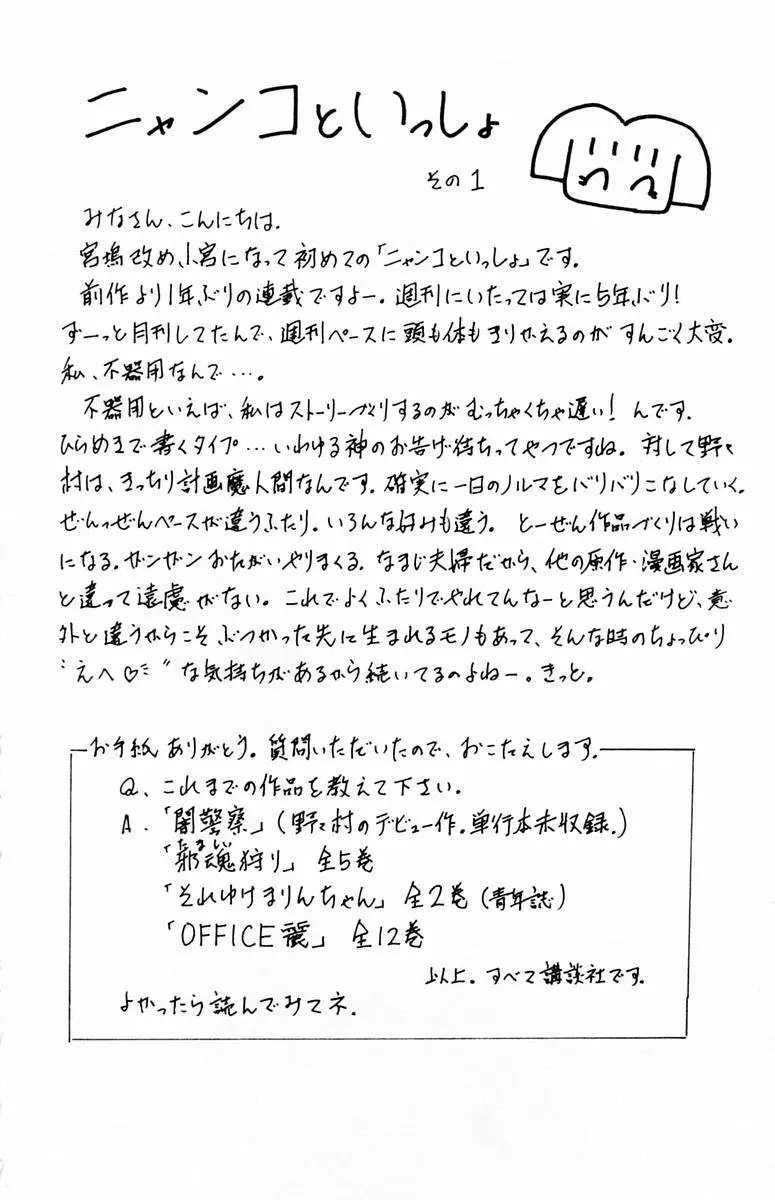 ニャンコといっしょ
その1
みなさん、こんにちは.
宮塢改め、小宮になって初めての「ニャンコといっしょ」です。
前作より1年ぶりの連載ですよー。週刊にいたっては実に5年ぶり!
ずーっと月刊してたんで、週刊ペースに頭も体もきりかえるのがすんごく大変。
私、不器用なんで…。
不器用といえば、私はストーリーづくりするのがむっちゃくちゃ遅い!んです.
ひらめきで書くタイプ…いわゆる神のお告げ待ちってやつですね。対して野々
村は、きっちり計画魔人間なんです.確実に一日のノルマをバリバリこなしていく.
ぜんっぜんペースが違うふたり.いろんな好みも違う。とーぜん作品づくりは戦い
になる.ガンガンおたがいやりまくる.なまじ夫婦だから、他の原作・漫画家さん
と違って遠慮がない。これでよくふたりでやれてんなーと思うんだけど、意
外と違うからこそぶつかった先に生まれるモノもあって、そんな時のちょっぴり
"えへ♡"な気持ちがあるから続いてるのよねー。きっと。
お手紙ありがとう。質問いただいたので、おこたえします.
Q、これまでの作品を教えて下さい.
A.「闇警察」(野々村のデビュー作.単行本未収録.)
たまい
「邪魂狩り」全5巻
「それゆけまりんちゃん」全2巻(青年誌)
「OFFICE麗」全12巻
以上。すべて講談社です.
よかったら読んでみてネ.